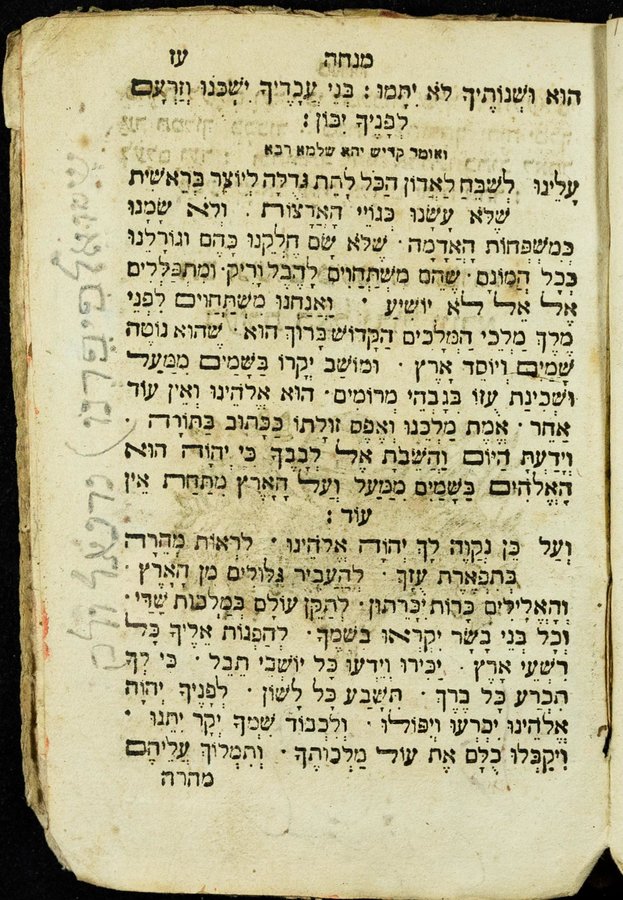 מנחה עז
הוא וּשְׁנוֹתֶיךָ לֹא יִתָּמוּ : בְּנֵי עֲבָדֶיךָ יִשְׁכֹּנוּ וְזַרְעָם
לְפָנֶיךָ יִכּוֹן :
ואומר קדיש יהא שלמא רבא
עָלֵינוּ לְשַׁבֵּחַ לַאֲדוֹן הַכֹּל לָתֵת גְּדֻלָּה לְיוֹצֵר בְּרֵאשִׁית
שֶׁלֹּא עָשָׂנוּ כְּגוֹיֵי הָאֲרָצוֹת . וְלֹא שָׂמָנוּ
כְּמִשְׁפְּחוֹת הָאֲדָמָה · שֶׁלֹּא שָׂם חֶלְקֵנוּ כָּהֶם וְגוֹרָלֵנוּ
כְּכָל הֲמוֹנָם · שֶׁהֵם מִשְׁתַּחֲוִים לָהֶבֶל וָרִיק · וּמִתְפַּלְלִים
אֶל אֵל לֹא יוֹשִׁיעַ · וַאֲנַחְנוּ מִשְׁתַּחֲוִים לִפְנֵי
מֶלֶךְ מַלְכֵי הַמְּלָכִים הַקָּדוֹשׁ בָּרוּךְ הוּא · שֶׁהוּא נוֹטֶה
שָׁמַיִם וְיוֹסֵד אָרֶץ · וּמוֹשַׁב יְקָרוֹ בַּשָּׁמַיִם מִמַּעַל
וּשְׁכִינַת עֻזּוֹ בְּגָבְהֵי מְרוֹמִים · הוּא אֱלֹהֵינוּ וְאֵין עוֹד
אַחֵר · אֱמֶת מַלְכֵּנוּ וְאֶפֶס זוּלָתוֹ כַּכָּתוּב בַּתּוֹרָה ·
וְיָדַעְתָּ הַיּוֹם וַהֲשֵׁבֹתָ אֶל לְבָבֶךָ כִּי יְהוָה הוּא
הָאֱלֹהִים בַּשָּׁמַיִם מִמַּעַל וְעַל הָאָרֶץ מִתָּחַת אֵין
עוֹד :
וְעַל כֵּן נְקַוֶּה לָךְ יְהוָה אֱלֹהֵינוּ · לִרְאוֹת מְהֵרָה
בְּתִפְאֶרֶת עֻזֶּךָ · לְהַעֲבִיר גִּלּוּלִים מִן הָאָרֶץ ·
וְהָאֱלִילִים כָּרוֹת יִכָּרֵתוּן · לְתַקֵּן עוֹלָם בְּמַלְכוּת שַׁדַּי ·
וְכָל בְּנֵי בָשָׂר יִקְרְאוּ בִשְׁמֶךָ · לְהַפְנוֹת אֵלֶיךָ כָּל
רִשְׁעֵי אָרֶץ · יַכִּירוּ וְיֵדְעוּ כָּל יוֹשְׁבֵי תֵבֵל · כִּי לְךָ
תִּכְרַע כָּל בֶּרֶךְ · תִּשָּׁבַע כָּל לָשׁוֹן · לְפָנֶיךָ יְהוָה
אֱלֹהֵינוּ יִכְרְעוּ וְיִפּוֹלוּ · וְלִכְבוֹד שִׁמְךָ יְקָר יִתֵּנוּ ·
וִיקַבְּלוּ כֻלָּם אֶת עוֹל מַלְכוּתֶךָ · וְתִמְלוֹךְ עֲלֵיהֶם
מהרה